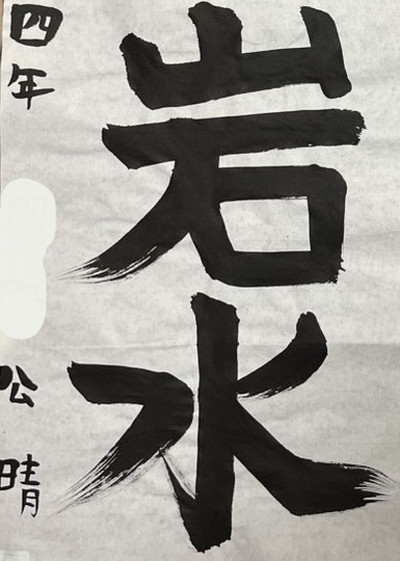 岩水
四年 公晴